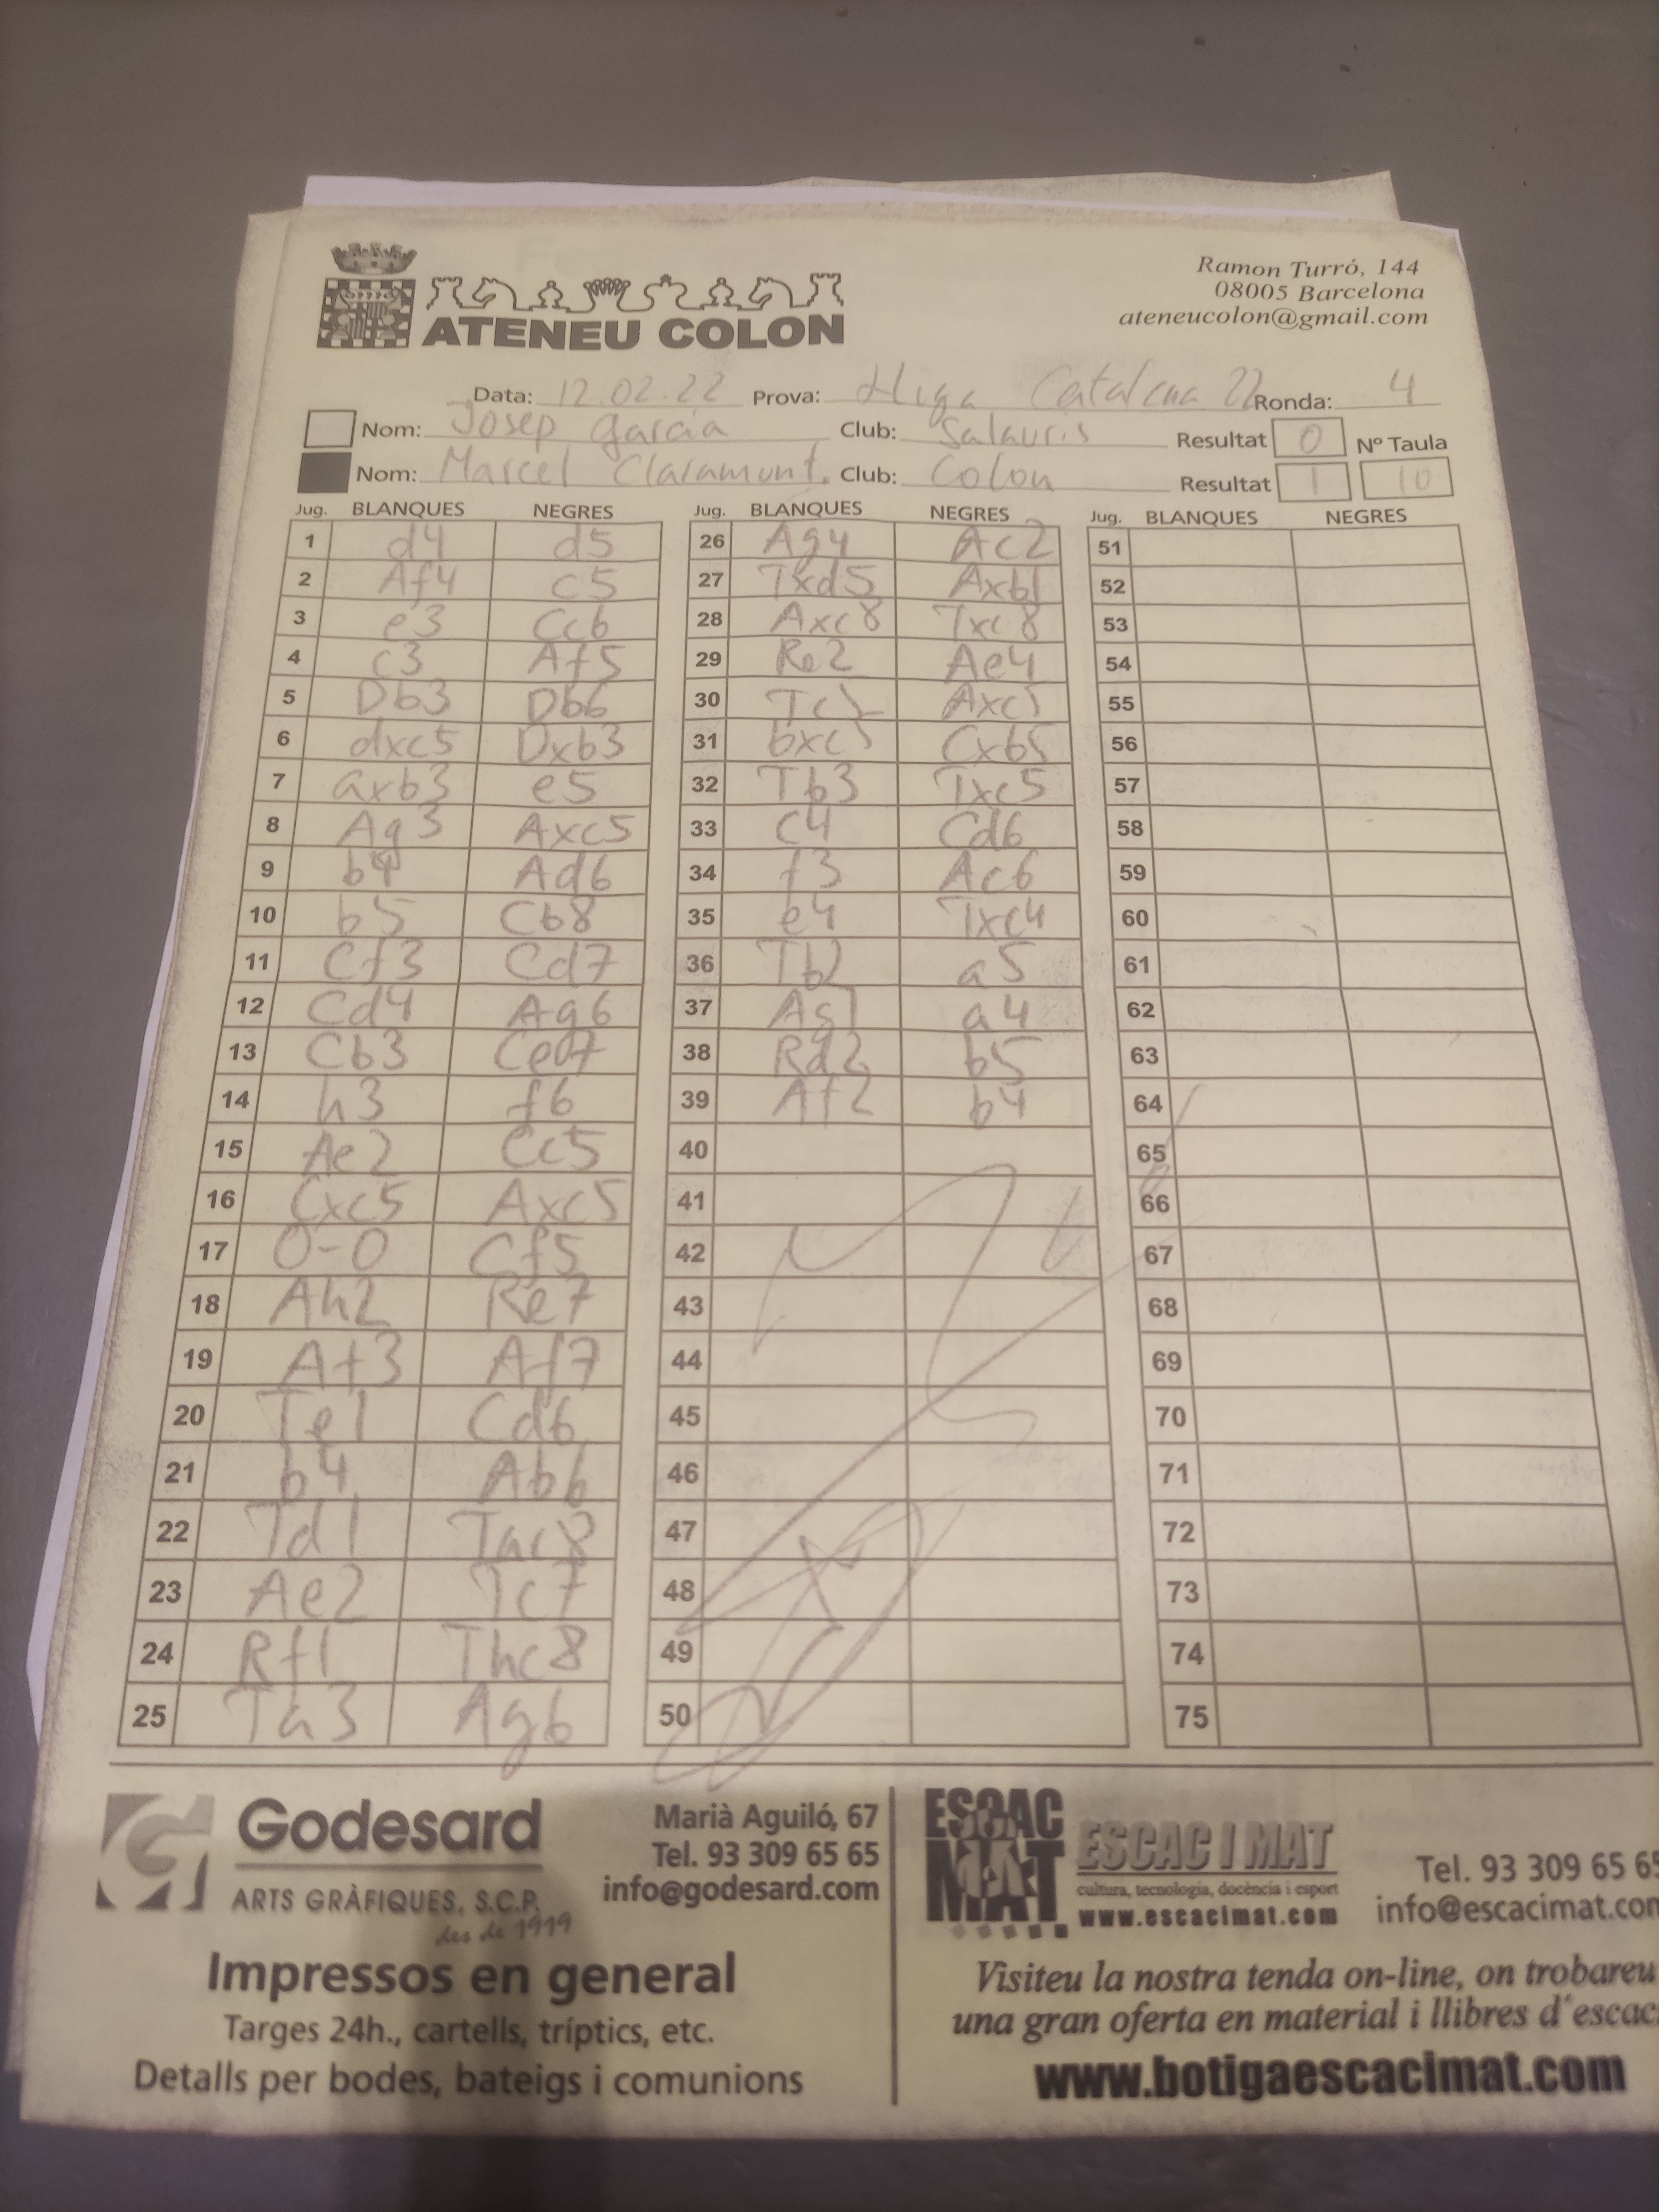 ATENEU COLON
Ramon Turró, 144
08005 Barcelona
ateneucolon@gmail.com
Data: 12.02.22 Prova: Lliga Catalana 22 Ronda: 4
Nom: Josep Garcia Club: Salauris Resultat 0 Nº Taula
Nom: Marcel Claramunt. Club: Colon Resultat 1 10
Jug. BLANQUES NEGRES
1 d4 d5
2 Af4 c5
3 e3 Cc6
4 c3 Af5
5 Db3 Db6
6 dxc5 Dxb3
7 axb3 e5
8 Ag3 Axc5
9 b4 Ad6
10 b5 Cb8
11 Cf3 Cd7
12 Cd4 Ag6
13 Cb3 Ce7
14 h3 f6
15 Ae2 Cc5
16 Cxc5 Axc5
17 0-0 Cf5
18 Ah2 Re7
19 Af3 Af7
20 Te1 Cd6
21 b4 Ab6
22 Td1 Tac8
23 Ae2 Tc7
24 Rf1 Thc8
25 Ta3 Ag6
Jug. BLANQUES NEGRES
26 Ag4 Ac2
27 Txd5 Axb1
28 Axc8 Txc8
29 Re2 Ae4
30 Tc5 Axc5
31 bxc5 Cxb5
32 Tb3 Txc5
33 c4 Cd6
34 f3 Ac6
35 e4 Txc4
36 Tb2 a5
37 Ag1 a4
38 Rd2 b5
39 Af2 b4
40
41
42
43
44
45
46
47
48
49
50
Jug. BLANQUES NEGRES
51
52
53
54
55
56
57
58
59
60
61
62
63
64
65
66
67
68
69
70
71
72
73
74
75
Godesard
ARTS GRÀFIQUES, S.C.P.
des de 1919
Marià Aguiló, 67
Tel. 93 309 65 65
info@godesard.com
Impressos en general
Targes 24h., cartells, tríptics, etc.
Detalls per bodes, bateigs i comunions
ESCAC
MAT
ESCAC I MAT
cultura, tecnologia, docència i esport
www.escacimat.com
Tel. 93 309 65 65
info@escacimat.com
Visiteu la nostra tenda on-line, on trobareu
una gran oferta en material i llibres d'escac
www.botigaescacimat.com